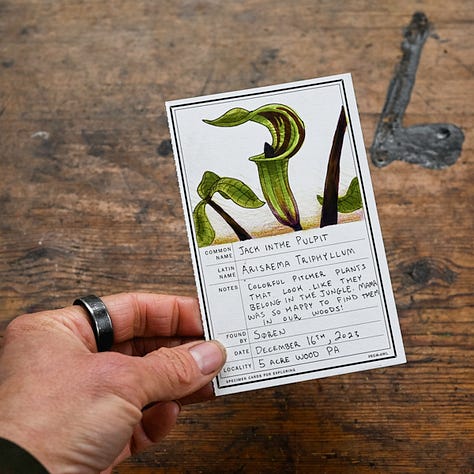 COMMON NAME JACK IN THE PULPIT
LATIN NAME ARISAEMA TRIPHYLLUM
NOTES COLORFUL PITCHER PLANTS
THAT LOOK LIKE THEY
BELONG IN THE JUNGLE. MAMA
WAS SO HAPPY TO FIND THEM
IN OUR WOODS!
FOUND BY SØREN
DATE DECEMBER 16TH, 2023
LOCALITY 5 ACRE WOOD PA
SPECIMEN CARDS FOR EXPLORING